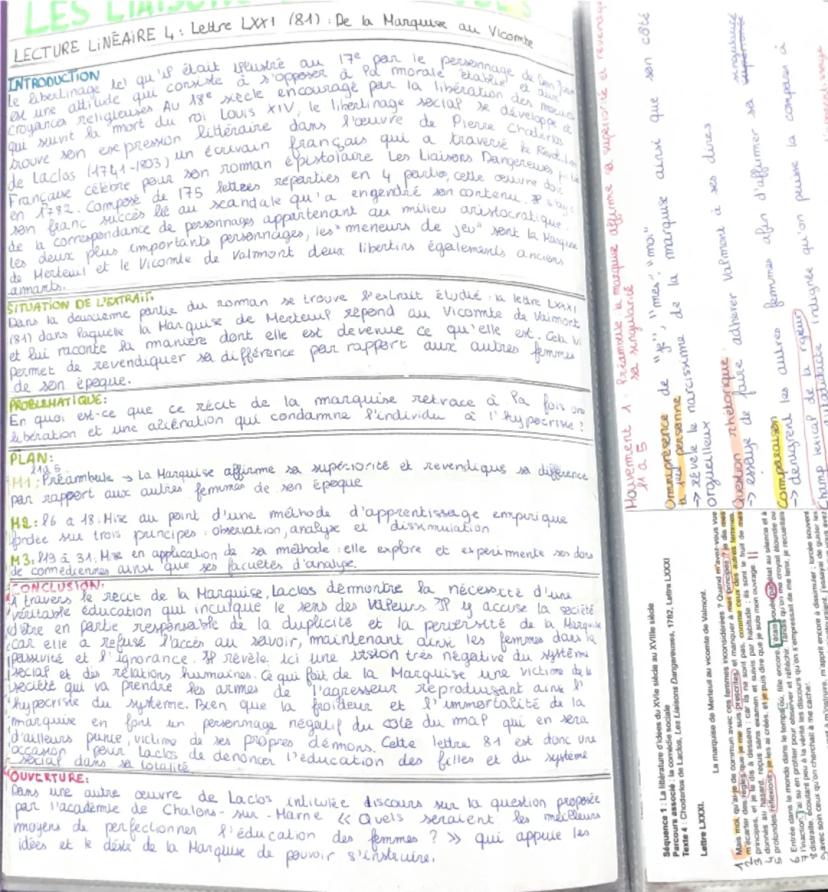 LES LIAISONS
LECTURE LINÉAIRE 4 : Lettre LXXXI (81) : De la Marquise au Vicomte
INTRODUCTION
Le libertinage tel qu'il était illustré au 17e par le personnage de Dom Juan
est une attitude qui consiste à s'opposer à la morale établie et aux
croyances religieuses Au 18e siècle encouragé par la libération des moeurs
qui suivit la mort du roi Louis XIV, le libertinage social se développe et
trouve son expression littéraire dans l'oeuvre de Pierre Choderlos
de Laclos (1741-1803) un écrivain français qui a traversé la Révolution
Française célèbre pour son roman épistolaire Les Liaisons Dangereuses
en 1782. Composé de 175 lettres réparties en 4 parties, cette oeuvre doit
son franc succès lié au scandale qu'a engendré son contenu. Il s'agit
de la correspondance de personnages appartenant au milieu aristocratique.
Les deux plus importants personnages, les "meneurs de jeu" sont la Marquise
de Merteuil et le Vicomte de Valmont deux libertins également anciens
amants.
SITUATION DE L'EXTRAIT:
Dans la deuxième partie du roman se trouve l'extrait étudié : la lettre LXXXI
(81) dans laquelle la Marquise de Merteuil répond au Vicomte de Valmont
et lui raconte la manière dont elle est devenue ce qu'elle est. Cela lui
permet de revendiquer sa différence par rapport aux autres femmes
de son époque.
PROBLÉMATIQUE:
En quoi est-ce que ce récit de la marquise retrace à la fois une
libération et une aliénation qui condamne l'individu à l'hypocrisie ?
PLAN:
l1 à 5
M1: Préambule → La Marquise affirme sa supériorité et revendique sa différence
par rapport aux autres femmes de son époque
M2: l6 à 18. Mise au point d'une méthode d'apprentissage empirique
fondée sur trois principes : observation, analyse et dissimulation
M3: l19 à 31. Mise en application de sa méthode : elle explore et expérimente ses dons
de comédiennes ainsi que ses facultés d'analyse.
CONCLUSION:
A travers le récit de la Marquise, Laclos démontre la nécessité d'une
véritable éducation qui inculque le sens des valeurs Il y accuse la société
d'être en partie responsable de la duplicité et la perversité de la Marquise
car elle a refusé l'accès au savoir, maintenant ainsi les femmes dans la
passivité et l'ignorance. Il révèle ici une vision très négative du système
social et des relations humaines. Ce qui fait de la Marquise une victime de la
société qui va prendre les armes de l'agresseur reproduisant ainsi l'
hypocrisie du système. Bien que la froideur et l'immortalité de la
marquise en font un personnage négatif du côté du mal qui en sera
d'ailleurs punie, victime de ses propres démons. Cette lettre est donc une
occasion pour Laclos de dénoncer l'éducation des filles et du système
social dans sa totalité.
OUVERTURE:
Dans une autre oeuvre de Laclos intitulée discours sur la question proposée
par l'académie de Chalons-sur-Marne « Quels seraient les meilleurs
moyens de perfectionner l'éducation des femmes ? » qui appuie les
idées et le désir de la Marquise de pouvoir s'instruire.
Mouvement 1 : Préambule la marquise affirme sa supériorité et revendique
l1 à 5 sa singularité
Omniprésence de "je", "mes", "moi"
la 1ère personne
→ révèle le narcissisme de la marquise ainsi que son côté
orgueilleux
Question rhétorique
→ essaye de faire adhérer Valmont à ses dires
Comparaison
→ dénigrent les autres femmes afin d'affirmer sa singularité
Champ lexical de la rigueur
indignée qu'on puisse la comparer à
Séquence 1 : La littérature d'idées du XVIe siècle au XVIIIe siècle
Parcours associé : la comédie sociale
Texte 4 : Choderlos de Laclos, Les Liaisons Dangereuses, 1782, Lettre LXXXI
Lettre LXXXI.
La marquise de Merteuil au vicomte de Valmont.
1 Mais moi, qu'ai-je de commun avec ces femmes inconsidérées ? Quand m'avez-vous vue
2 m'écarter des règles que je me suis prescrites, et manquer à mes principes ? je dis mes
3 principes, et je le dis à dessein : car ils ne sont pas, comme ceux des autres femmes,
4 donnés au hasard, reçus sans examen et suivis par habitude ; ils sont le fruit de mes
5 profondes réflexions ; je les ai créés, et je puis dire que je suis mon ouvrage.
6 Entrée dans le monde dans le temps où, fille encore, j'étais vouée par état au silence et à
7 l'inaction, j'ai su en profiter pour observer et réfléchir. Tandis qu'on me croyait étourdie ou
8 distraite, écoutant peu à la vérité les discours qu'on s'empressait de me tenir, je recueillais
9 avec soin ceux qu'on cherchait à me cacher.